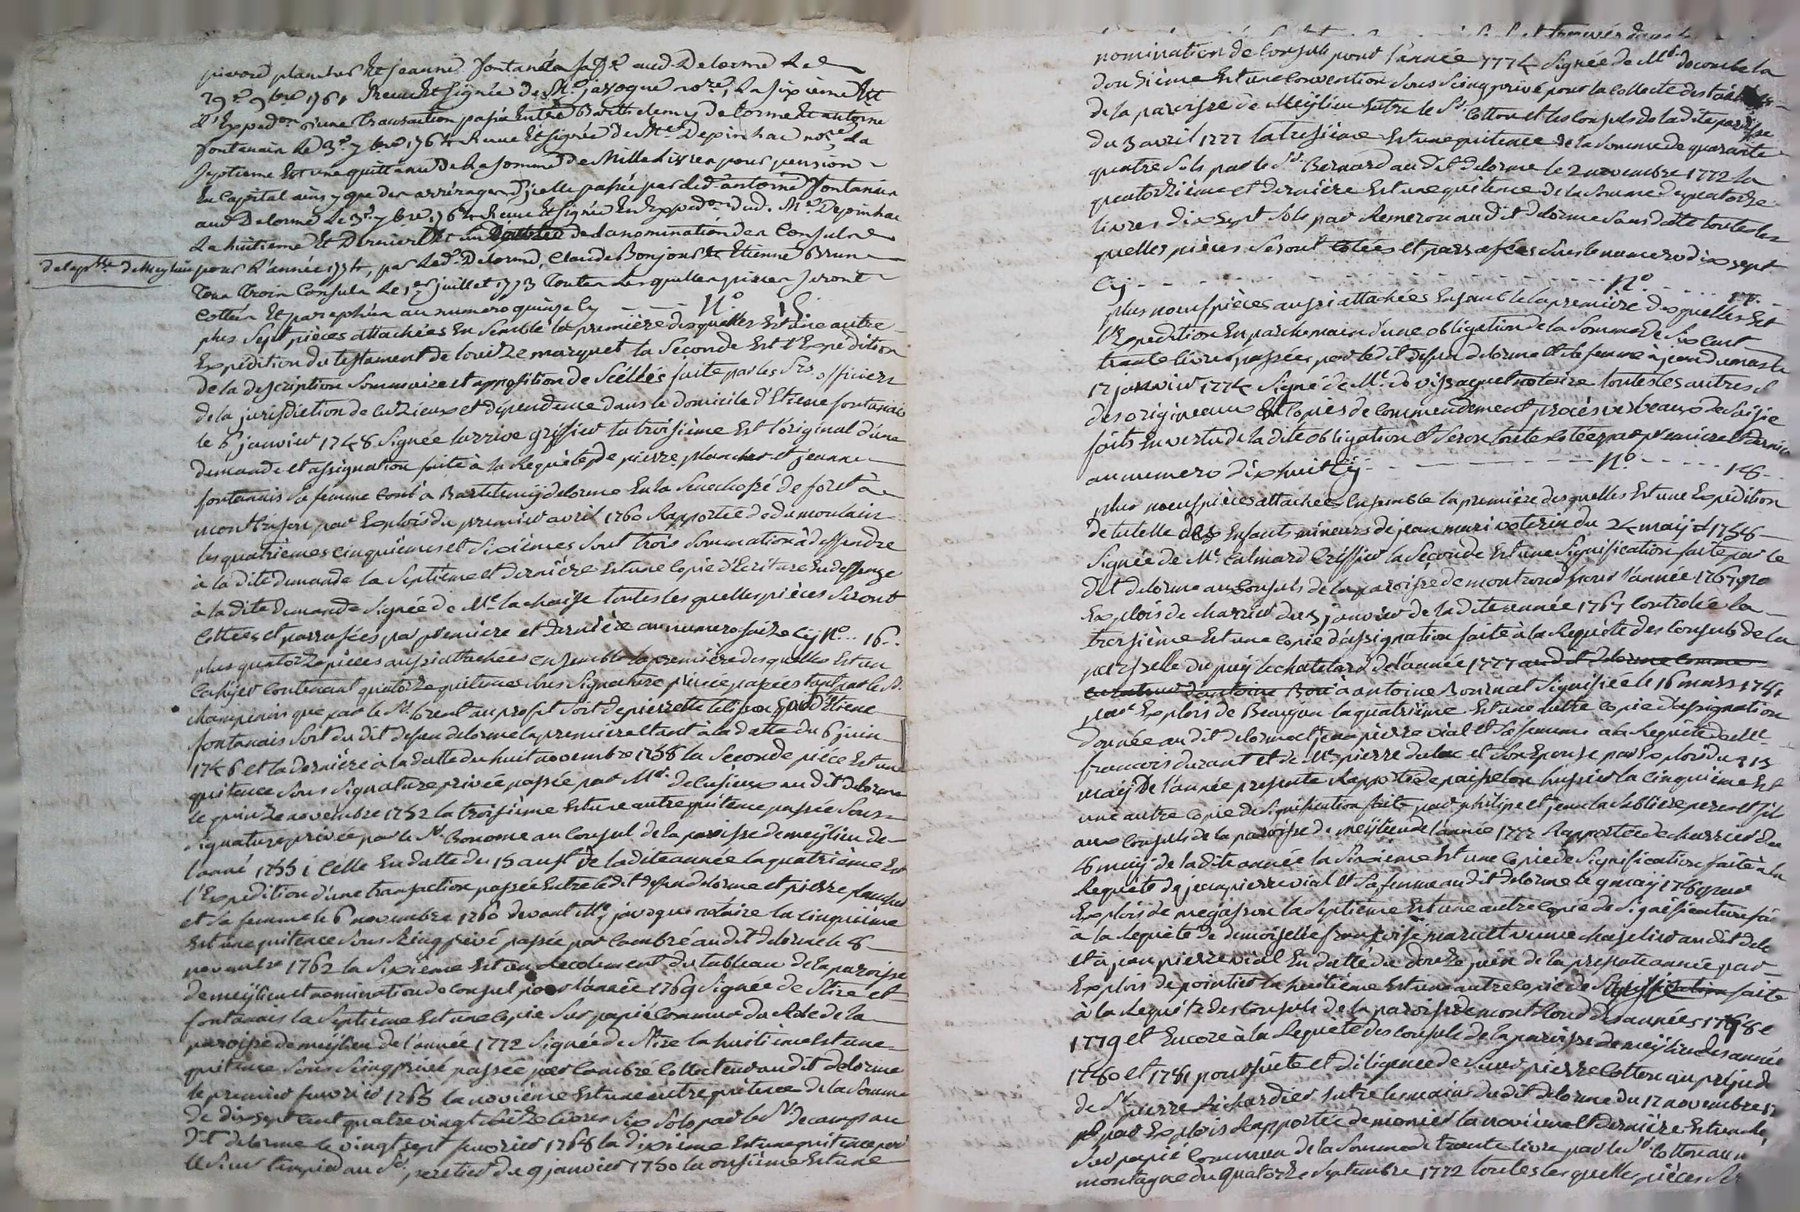 pierre planchet Et Jeanne fontanés sa fe aud Delorme Le
29e 9bre 1761 Reçue Et signée de Me javogue nore, La sixieme Est
l'Expedon d'une transaction passée Entre Barthelemy delorme Et antoine
fontanain Le 3e 7bre 1764 Reçue Et signée de Me Depinhac nore La
septieme Est une quittance de La somme de Mille Livres pour pension
En Capital ainsy que des arrérages d'jcelle passée par led. antoine fontanain
aud Delorme Le 3e 7bre 1764 Reçue Et signée En Expedon dud. Me Depinhac
La huitieme Et Derniere Est un de la nomination des Consuls
de la psse de Meylieu pour L'année 1774, par Led. Delorme, Claude Bonjour Et Etienne Brun
tous trois Consuls Le 1er juillet 1773 toutes Les quelles pieces seront
Cottées Et paraphées au numero quinze Cy No 15
plus sept pièces attachées Ensemble la première desquelles Est une autre
Expédition du testament de Louise marquet la seconde Est l'Expédition
de la description sommaire et apposition de scéllés faite par les Srs officiers
de la jurisdiction de Cuzieux et dépendence dans le domicile d'Etiene fontanais
le 6 janvier 1748 signée greffier la troisième Est l'original d'une
demande et assignation faite à la Requête de pierre planchet et jeanne
fontanais sa femme Cont'a Bartelemij delorme En la Senechossé de forêt à
montbrison par Exploit du premier avril 1760 Rapportée de dumoulain
les quatrièmes cinquièmes et sixièmes sont trois sommation à deffendre
à la dite demande la septième et dernière Est une Copie d'Ecriture En deffense
à la dite demande signée de Me lachaise toutes les quelles pièces seront
Cottées et parrafées par première et dernière au numero saize Cij No 16
plus quatorze pièces aussi attachées ensemble la première des quelles Est un
Cahijer Contenant quatorze quitences sous signature privée passées tant par le Sr
champenis que par le Sr au profit soit de pierrette d'Etiene
fontanais soit du dit defun delorme la première Etant à la datte du 6 juin
1746 et la dernière à la datte du huit novembre 1758 la seconde pièce Est une
quitence sous signature privée passée par Mr. de Cusieux au dit delorme
le novembre 1752 la troisième Est une autre quitence passée sous
signature privée par le Sr Bonome au Consul de la paroisse de meijlieu de
l'anné 1755 icelle En datte du 15 aust de la dite année la quatrième Est
l'Expédition d'une transaction passée Entre le dit defun delorme et pierre planchet
et sa femme le 6 novembre 1760 devant Me javoque notaire la cinquième
Est une quitence sous seing privé passée par Combré au dit delorme le 8
novembre 1762 la sixième Est un Recolement du tableau de la paroisse
de meijlieu et nomination de Consul pour l'année 1769 signée de Stire et
fontanais la septième Est une Copie sur papié Commun du Role de la
paroisse de meijlieu de l'année 1772 signée de Stire la huitième Est une
quitence sous seing privé passée par Combre Collecteur au dit delorme
le premier fevrier 1765 la novième Est une autre quitence de la somme
de dix sept cent quatre vingt livres six sols par le Sr decamps au
dit delorme le vingt sept fevrier 1768 la dixième Est une quitence par
le Sieur au Sr, peretier du 9 janvier 1750 la onsième Est une
nomination de Consuls pour l'année 1774 signée de Mr decombe la
douzième Est une Convention sous seing privé pour la Collecte des
de la paroisse de Meijlieu Entre le Sr. Cotton et les Consuls de la dite paroisse
du 3 avril 1777 la tresième Est une quitence de la somme de quarante
quatre sols par le Sr Bernard au dit delorme le 2 novembre 1772 la
quatorzième et dernière Est une quitence de la somme de quatorze
livres dix sept sols par Remerou au dit delorme sans datte toutes les
quelles pièces seront Cotées et parrafées sous le numero dix sept
Cij No 17
plus neuf pièces aussi attachées Ensemble la première des quelles Est
l'Expédition En parchemain d'une obligation de la somme de six cent
trante livres passées par le dit defun delorme et sa femme à jean dumas le
17 janvier 1774 signé de Me. notaire toutes les autres
des originaux Et Copies de Commendement procès verbeaux de saisie
faits En vertu de la dite obligation Et seron toute Cotées par première et dernière
au numero dix huit Cij No 18
plus neuf pièces attachées Ensemble la première des quelles Est une Expédition
de tutelle des Enfants mineurs de jean mari du 24 maij 1758
signée de Me Calmard Greffier la seconde Est une signification faite par le
dit delorme au Consuls de la paroisse de montrond pour l'année 1767 par
Exploit de Marrier du 5 janvier de la dite année 1767 Controlée la
troisième Est une Copie d'assignation faite à la Requête des Consuls de la
parselle du puij le chatelard de l'année 1777 au dit delorme Comme
antoine Bon à antoine Signifiée le 16 mars 1781
par Exploit de Beaujeu la quatrième Est une autre Copie d'assignation
donnée au dit delorme et jean pierre vial et sa femme à la Requête de Me
francois durant et de Me pierre dulac et son Epouse par Exploit du 15
maij de l'année presente Rapportée de paisselon huissier la cinquième Est
une autre Copie de signification faite par philipe et jean la sabliere pere et fils
aux Consuls de la paroisse de meijlieu de l'année 1777 Rapportée de Marrier du
18 maij de la dite année la sixième Est une Copie de signification faite à la
Requête de jean pierre vial et sa femme au dit delorme le 9 maij 1780 par
Exploit de megasson la septième Est une autre Copie de signification fai
à la Requête de demoiselle françoise veuve au dit delo
et à jean pierre vial En datte du douze juin de la presente année par
Exploit de pointier la huitième Est une autre Copie de signification faite
à la Requête des Consuls de la paroisse de mont Rond des années 1778 et
1779 et Encore à la Requête des Consuls de la paroisse de meijlieu des année
1780 et 1781 poursuite et diligence de Sieur pierre Cotton au préjudi
de Sr pierre Richardier Entre les mains du dit delorme du 17 novembre
par Exploit Rapportée de monier la novième et dernière Est un
sur papié Commun de la somme de trante livre par le Sr Cotton au
montagne du quatorze septembre 1772 toutes les quelles pièces